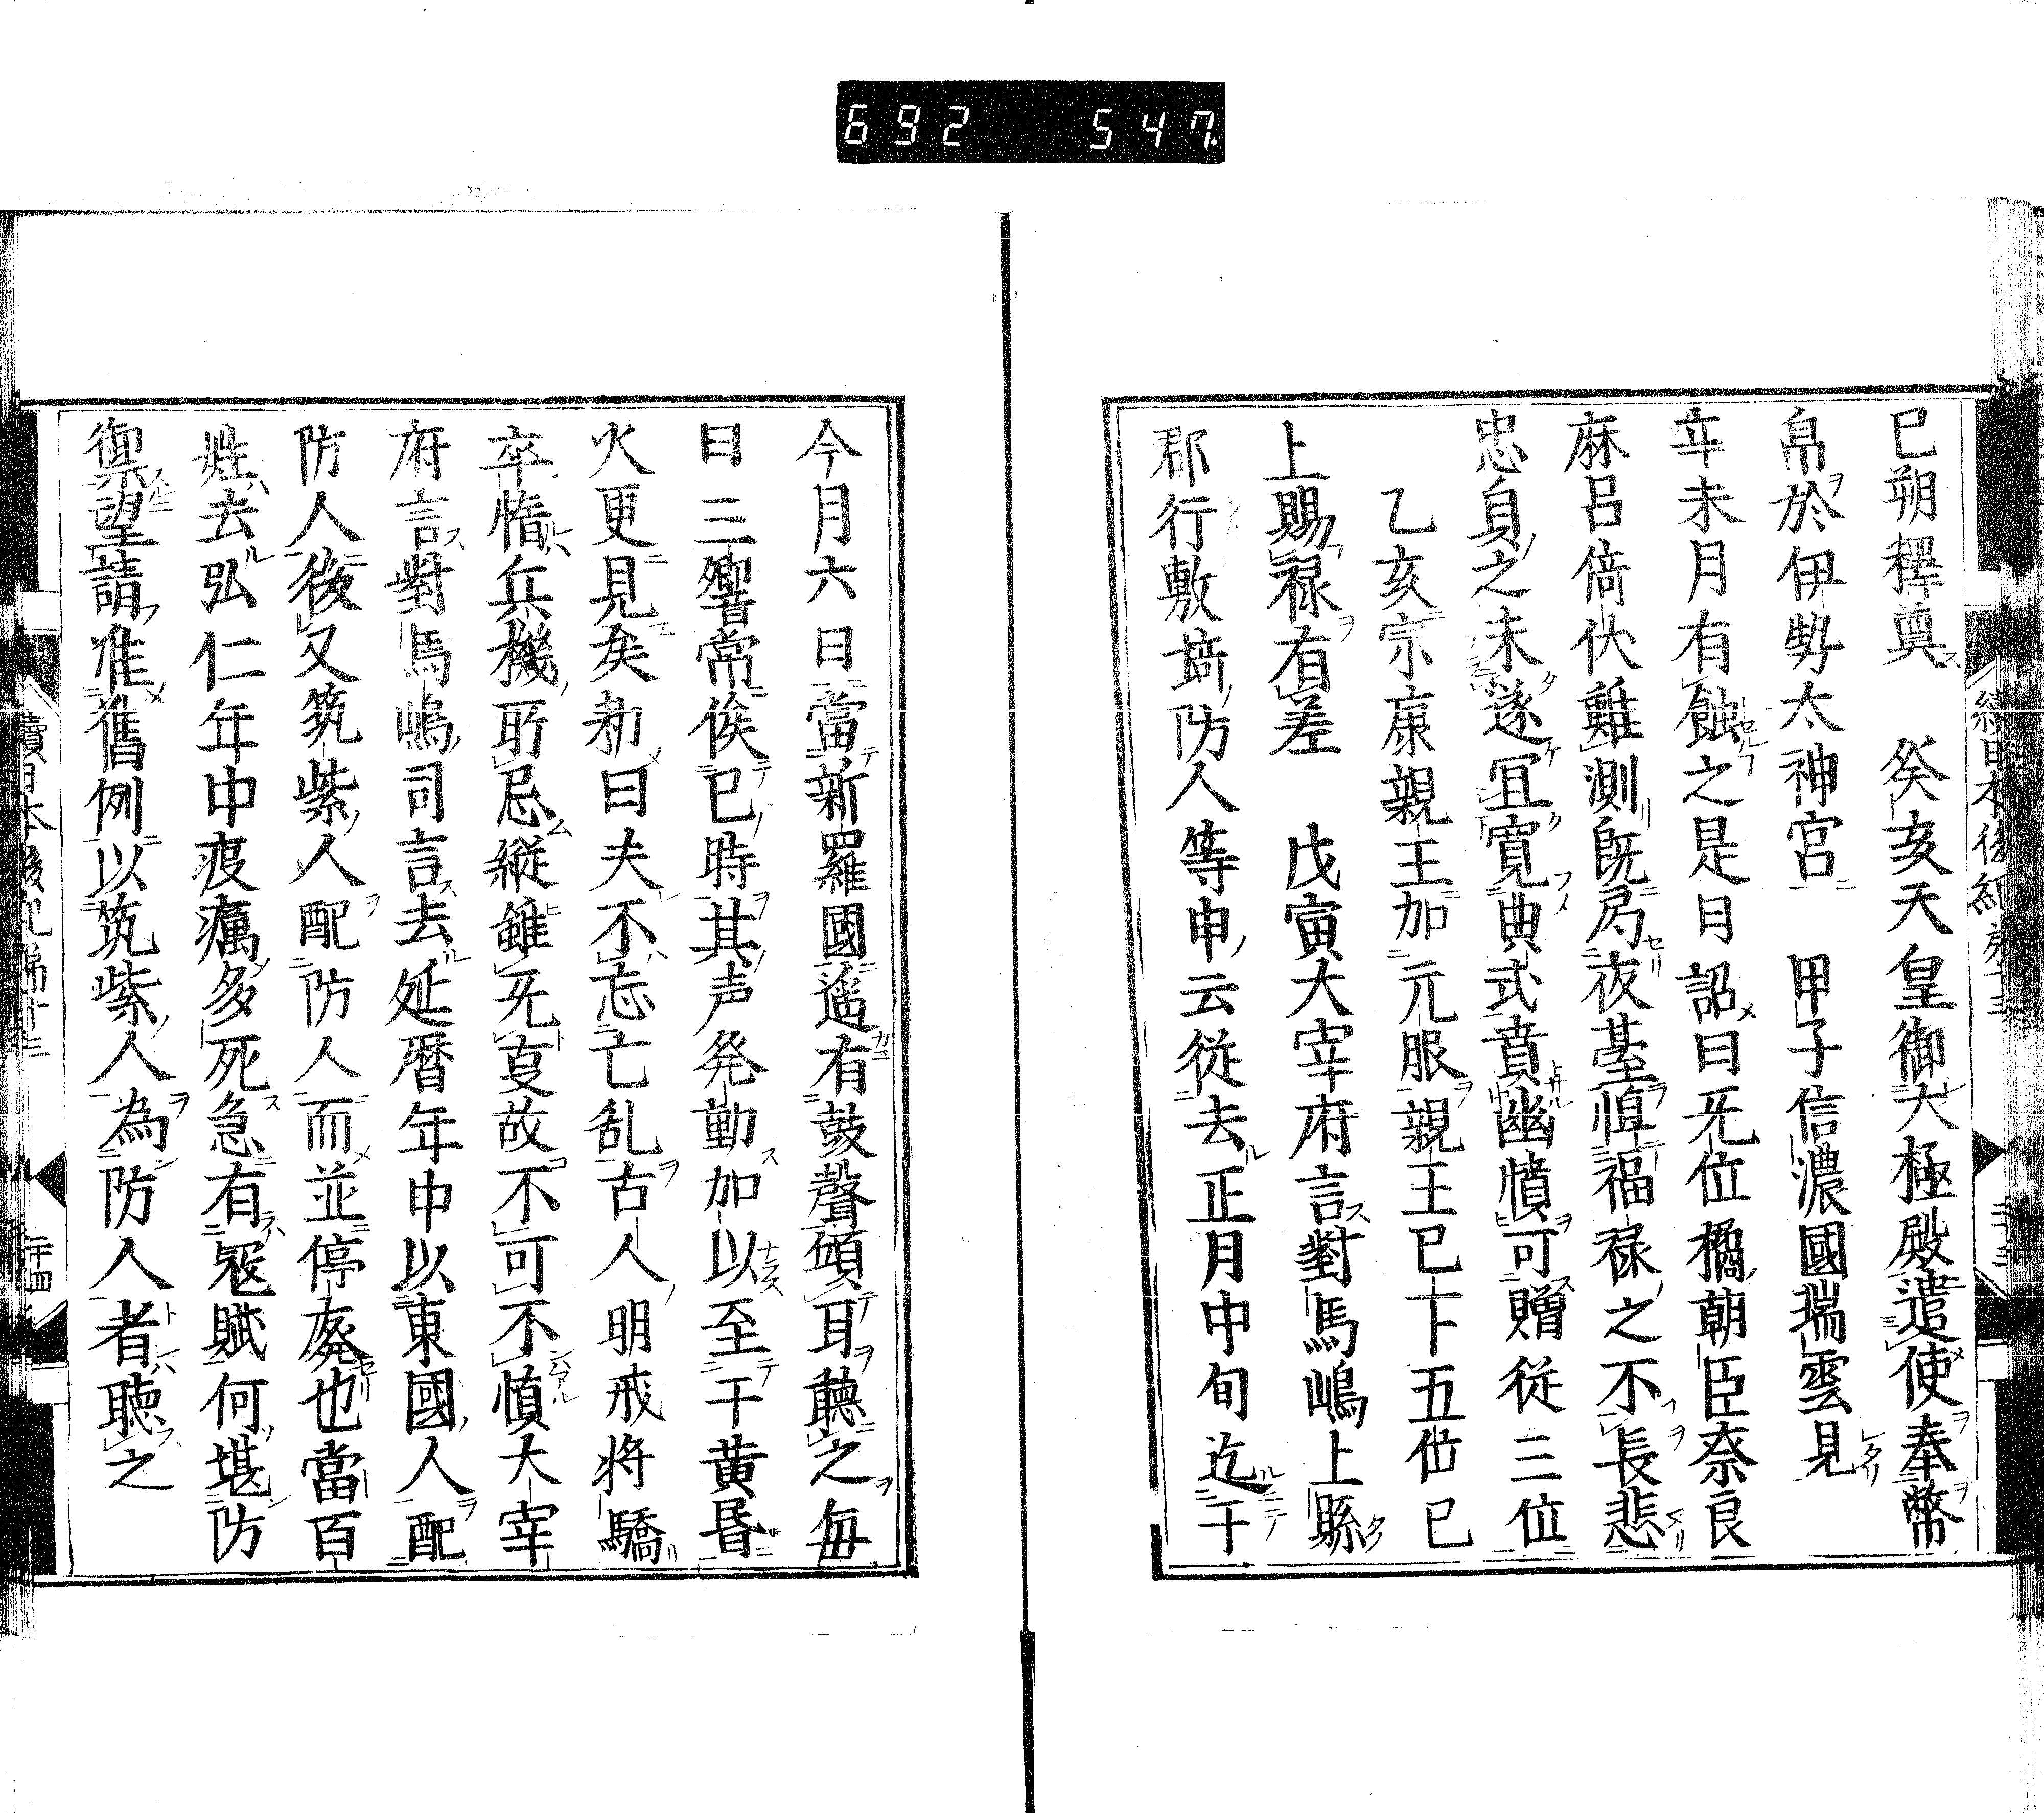 692 547
巳朔釋奠　癸亥天皇御大極殿遣使奉幣
帛於伊勢太神宮　甲子信濃國瑞雲見
辛未月有蝕之是日詔曰无位橘朝臣奈良
麻呂倚伏難測既局夜臺恒福禄之不長悲
忠貞之未遂冝寛典式賁幽憤可贈從三位
乙亥宗康親王加元服親王已下五位已
上賜禄有差　戊寅大宰府言對馬嶋上縣
郡行敷埼防人等申云從去正月中旬迄于
今月六日當新羅國遥有鼓聲傾耳聽之毎
日三響常俟巳時其声発動加以至于黄昏
火更見矣勅曰夫不忘亡乱古人明戒将驕
卒惰兵機所忌縦雖无叓故不可不慎大宰
府言對馬嶋司言去延暦年中以東國人配
防人後又筑紫人配防人而並停廃也當百
姓去弘仁年中疫癘多死急有冦賊何堪防
禦望請准舊例以筑紫人為防人者聴之
續日本後紀